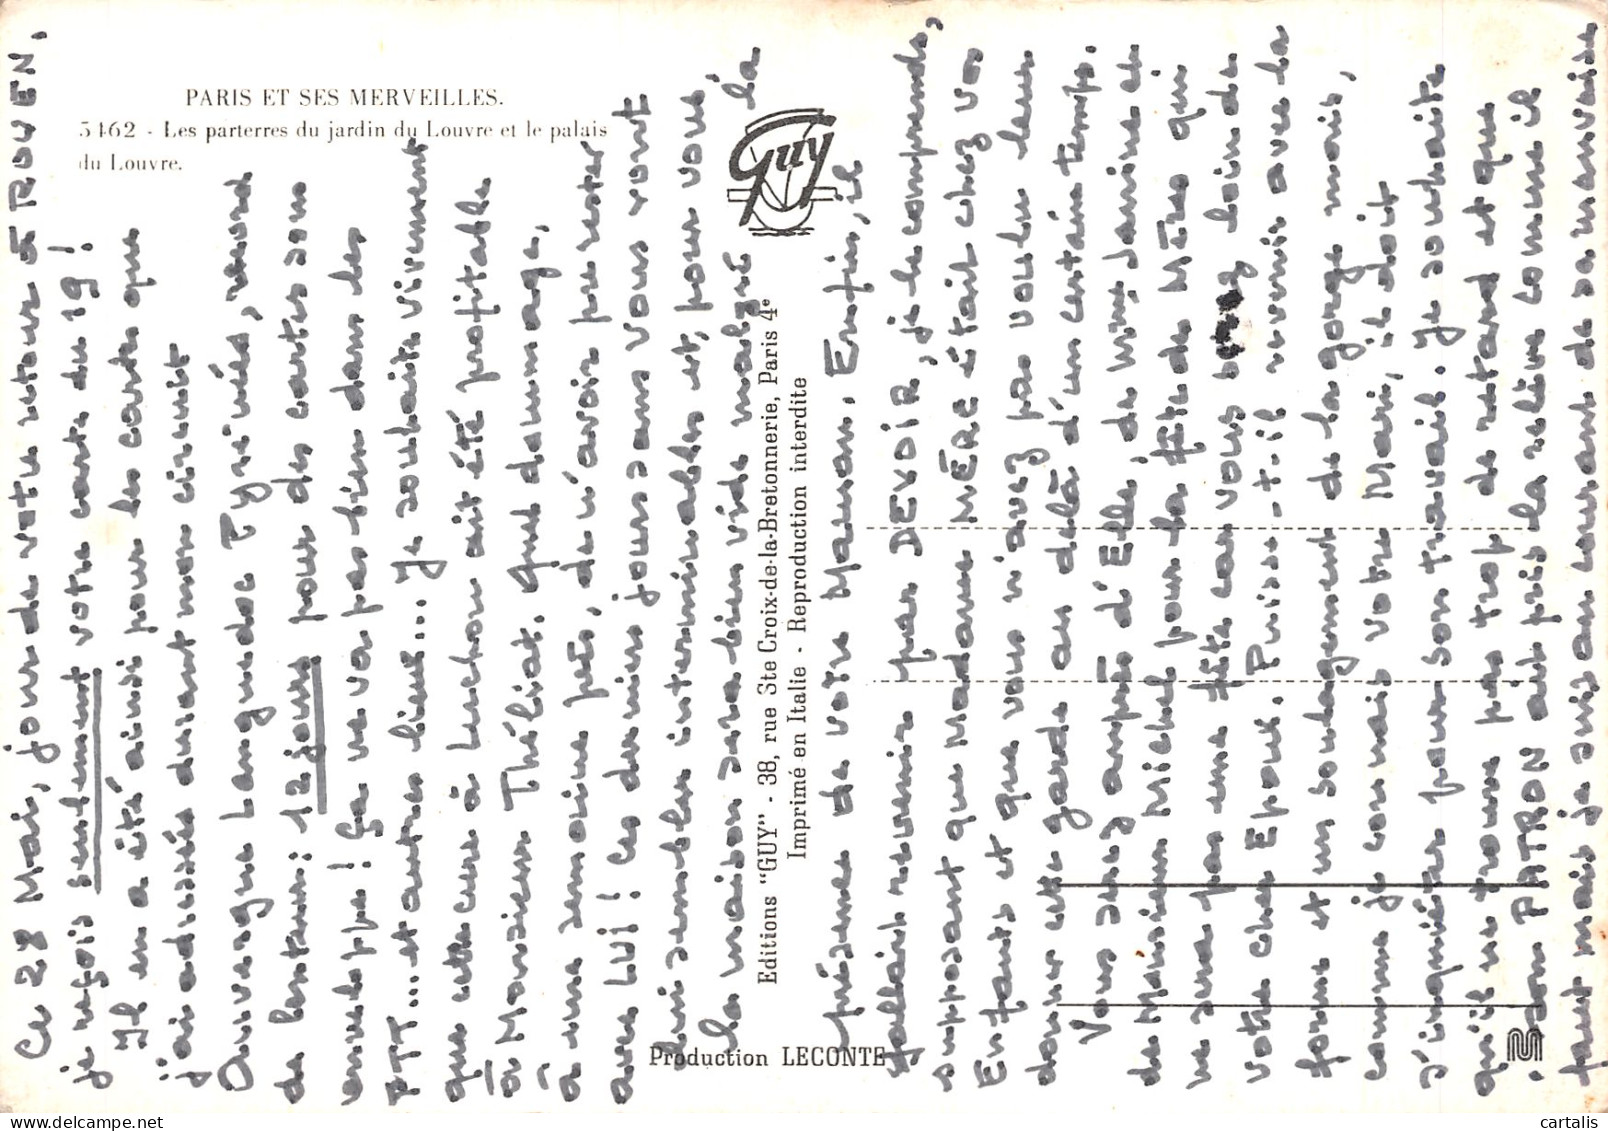 PARIS ET SES MERVEILLES.
5462 - Les parterres du jardin du Louvre et le palais
du Louvre.
Guy
Editions "GUY" - 38, rue Ste Croix-de-la-Bretonnerie, Paris 4e
Imprimé en Italie - Reproduction interdite
Production LECONTE
Ce 28 Mai, jour de votre retour à ROUEN,
je reçois seulement votre carte du 19!
Il en a été ainsi pour les cartes que
j'ai adressées durant mon circuit
Auvergne Languedoc Pyrénées, record
de lenteur: 12 jours pour des cartes sous
enveloppe! Ça ne va pas bien dans les
PTT... et autres lieux... Je souhaite vivement
que cette cure à Luchon ait été profitable
à Monsieur Théliat. Quel dommage,
à une semaine près, de n'avoir pu rester
avec LUI! Ces derniers jours sans vous vont
lui sembler interminables et, pour vous,
la maison sera bien vide malgré la
présence de votre Maman. Enfin, il
fallait revenir par DEVOIR, je le comprends,
supposant que Madame MÈRE était chez vos
Enfants et que vous n'avez pas voulu leur
donner cette garde au delà d'un certain temps.
Vous serez auprès d'Elle, de Mme Janine et
de Monsieur Michel pour la fête des Mères qui
ne sera pas une fête car vous serez loin de
votre cher Epoux. Puisse-t-il revenir avec la
forme et un soulagement de la gorge mais,
comme je connais votre Mari, il doit
s'inquiéter pour son travail. Je souhaite
qu'il ne trouve pas trop de retard et que
son PATRON ait pris la relève comme il
faut mais je suis au courant de sa mauvaise
M
cartalis